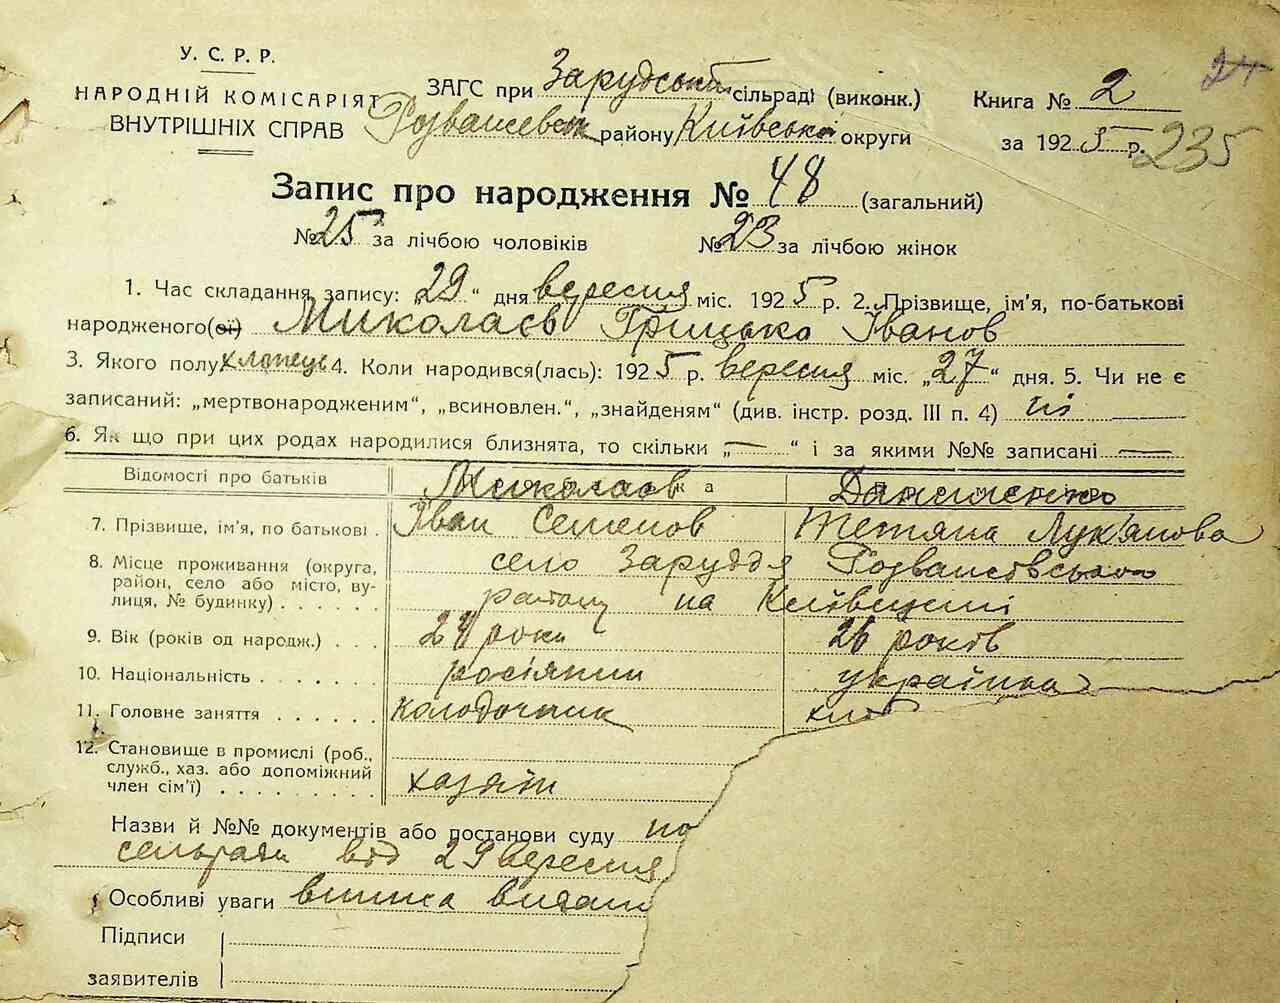 У. С. Р. Р.
НАРОДНІЙ КОМІСАРІЯТ
ВНУТРІШНІХ СПРАВ
ЗАГС при Зарудській сільраді (виконк.)
Розважевськ району Київської округи
Книга № 2
за 1925 р.
24
235
Запис про народження № 48 (загальний)
№ 25 за лічбою чоловіків № 23 за лічбою жінок
1. Час складання запису: „29“ дня вересня міс. 1925 р. 2. Прізвище, ім'я, по-батькові
народженого(ої) Миколаєв Грицько Іванов
3. Якого полу хлопець 4. Коли народився(лась): 1925 р. вересня міс. „27“ дня. 5. Чи не є
записаний: „мертвонародженим“, „всиновлен.“, „знайденям“ (див. інстр. розд. III п. 4) ні
6. Як що при цих родах народилися близнята, то скільки „—“ і за якими №№ записані —
Відомості про батьків Миколаєв Даниленко
7. Прізвище, ім'я, по батькові . Іван Семенов Тетяна Лук'янова
8. Місце проживання (округа, район, село або місто, вулиця, № будинку) . . . . . . село Заруддя Розважевського
району на Київщині
9. Вік (років од народж.) . . . 24 роки 26 років
10. Національність . . . . . . . росіянин українка
11. Головне заняття . . . . . . колодочник
12. Становище в промислі (роб., служб., хаз. або допоміжний член сім'ї) . . . . . . . . . хазяїн
Назви й №№ документів або постанови суду по
сельради від 29 вересня
Особливі уваги випис видан
Підписи
заявителів